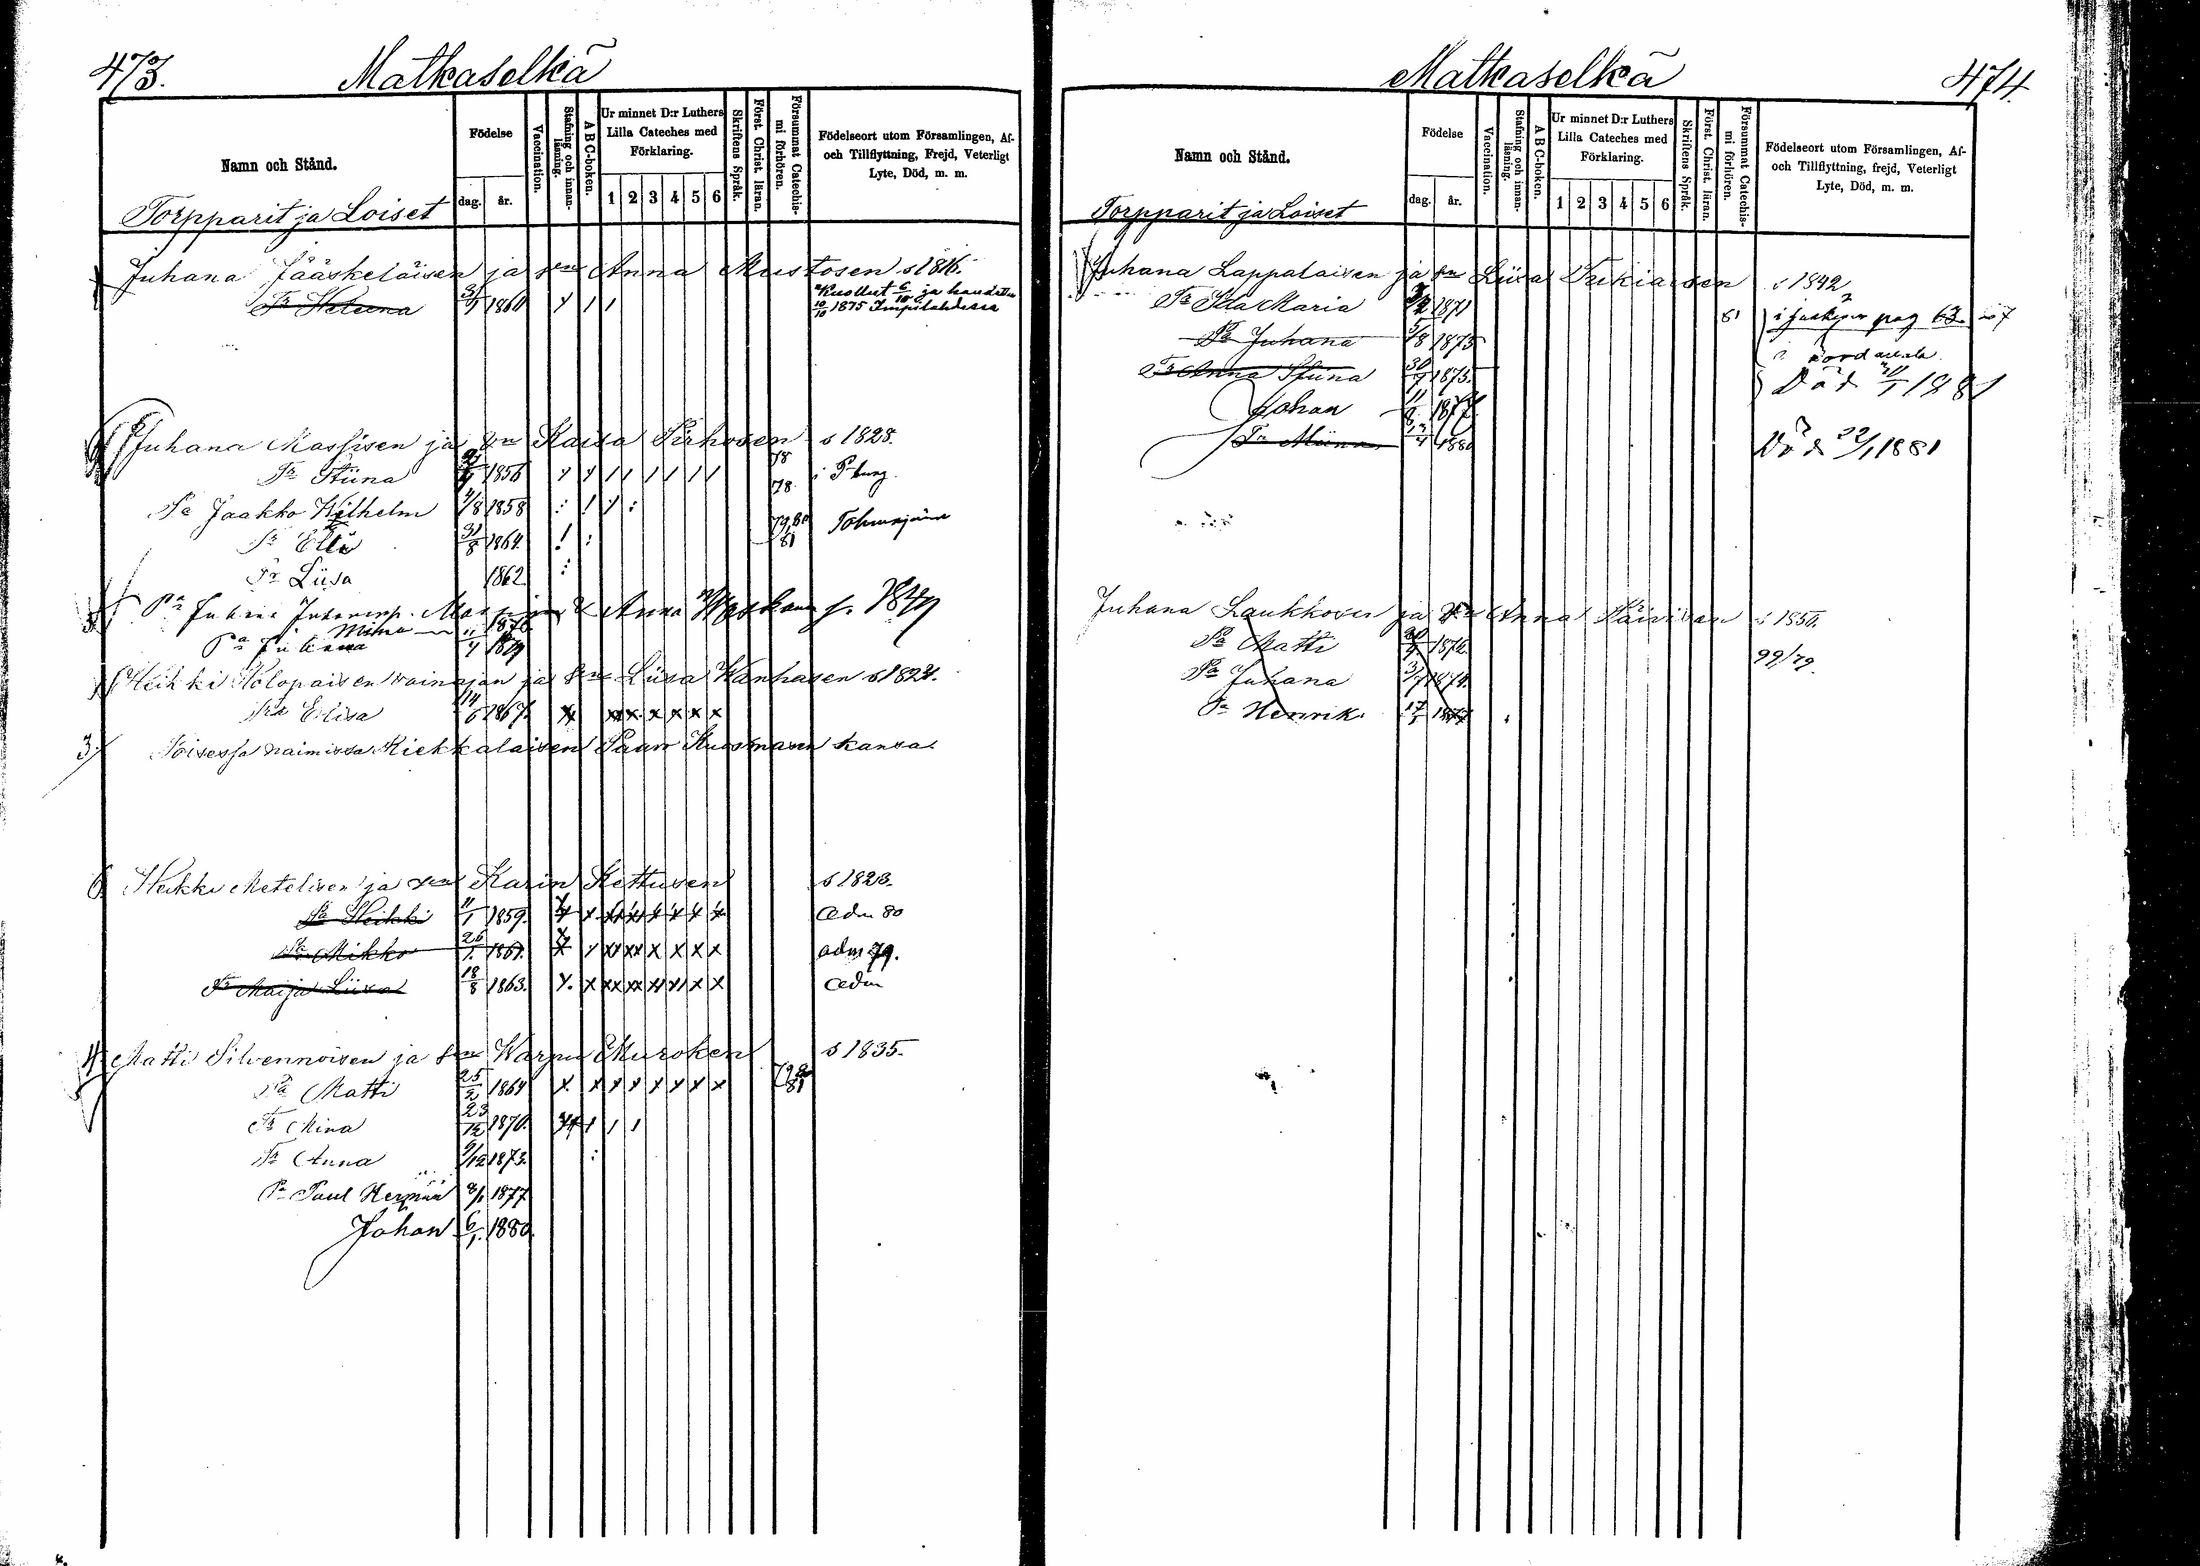 473. Matkaselkä
Namn och Stånd.
Födelse
dag. år.
Vaccination.
Stafning och innanläsning.
A B C-boken.
Ur minnet D:r Luthers Lilla Cateches med Förklaring.
1 2 3 4 5 6
Skriftens Språk.
Först. Christ. läran.
Försummat Catechismi förhören.
Födelseort utom Församlingen, Af- och Tillflyttning, Frejd, Veterligt Lyte, Död, m. m.
Torpparit ja Loiset
Juhana Jääskeläisen ja vm Anna Mustosen s 1816.
Tr Helena 1860 Kuollut 6/10 ja haudattu
10/10 1875 Impilahdessa
Juhana Massisen ja vm Kaisa Pirhosen s 1828.
Tr Stiina 1856 78 i P-burg.
Pa Jaakko Wilhelm 4/8 1858 78.
Tr Ella 31/8 1864 79,80 81 Tohmajärvi
Tr Liisa 1862
Anna s. 1849
Mikko 1878
Pa Juhana 1879
Heikki Holopaisen vainajan ja vm Liisa Wanhasen s 1824.
Tr Elisa 14/6 1867.
Toisessa naimisssa Kiekkalaisen Paavo Kuosmasen kansa.
Heikki Metelisen ja vm Karin Kettusen s 1823.
Pa Heikki 11/1 1859. adm 80
Pa Mikko 26/1 1861. adm 79.
Tr Maija Liisa 18/8 1863. adm
Matti Silvennoisen ja vm Warpu Muroken s 1835.
Pa Matti 25/2 1864 81
Tr Mina 23/12 1870.
Tr Anna 9/12 1873.
Pa Paul Herman 8/1 1877
Johan 6/1. 1880.
Matkaselkä 474.
Namn och Stånd.
Födelse
dag. år.
Vaccination.
Stafning och innanläsning.
A B C-boken.
Ur minnet D:r Luthers Lilla Cateches med Förklaring.
1 2 3 4 5 6
Skriftens Språk.
Först. Christ. läran.
Försummat Catechismi förhören.
Födelseort utom Församlingen, Af- och Tillflyttning, frejd, Veterligt Lyte, Död, m. m.
Torpparit ja Loiset
Juhana Lappalaisen ja vm Liisa Tukiaisen s 1842
Tr Ida Maria 1871 81 pag 63.
Pa Juhana 5/8 1873
Tr Anna Stiina 30 1875. Död 1881
Johan 11 1877
Tr Miina 1880 Död 22/1 1881
Juhana Laukkosen ja vm Anna Päivisen s 1850.
Pa Matti 1872. 99/79.
Pa Juhana 3/7 1874.
Pa Henrik. 17 1877